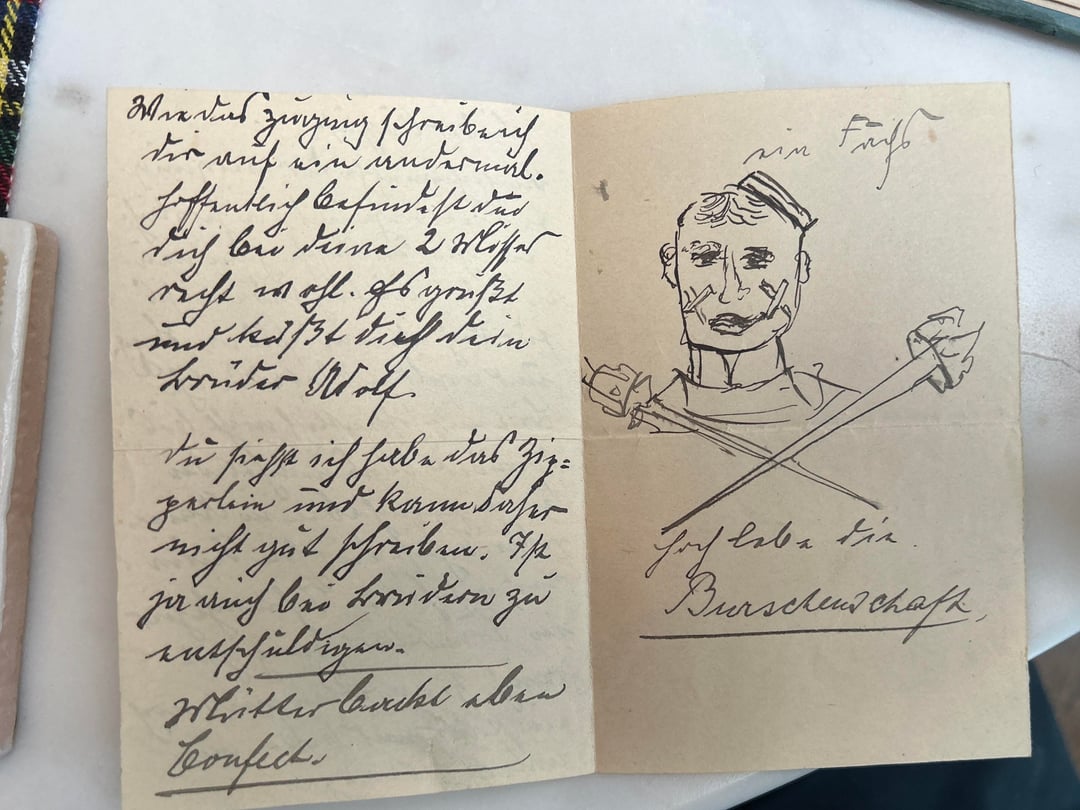 Wie das zuging schreibe ich
dir auf ein andermal.
Hoffentlich befindest du
dich bei deine 2
recht wohl. Es grüßt
und küßt dich dein
Bruder Adolf.
Du siehst ich habe das Zip=
perlein und kann daher
nicht gut schreiben. Ist
ja auch bei Brüdern zu
entschuldigen.
Mutter backt eben
Confect.
ein Fuchs
hoch lebe die
Burschenschaft.